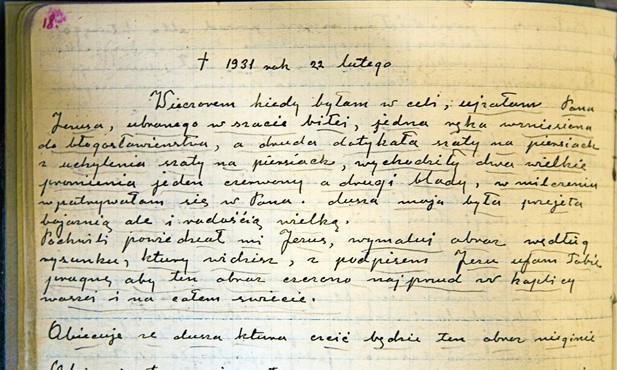 18.
† 1931 rok 22 lutego
Wieczorem kiedy byłam w celi, ujrzałam Pana
Jezusa, ubranego w szacie białej, jedna ręka wzniesiona
do błogosławieństwa, a druga dotykała szaty na piersiach
z uchylenia szaty na piersiach, wychodziły dwa wielkie
promienia jeden czerwony a drugi blady, w milczeniu
wpatrywałam się w Pana. dusza moja była przejęta
bojaźnią ale i radością wielką.
Po chwili powiedział mi Jezus, wymaluj obraz według
rysunku, ktury widzisz, z podpisem Jezu ufam Tobie
pragnę aby ten obraz czczono najprzud w kaplicy
waszej i na całem świecie.
Obiecuje że dusza ktura czcić będzie ten obraz nie zginie